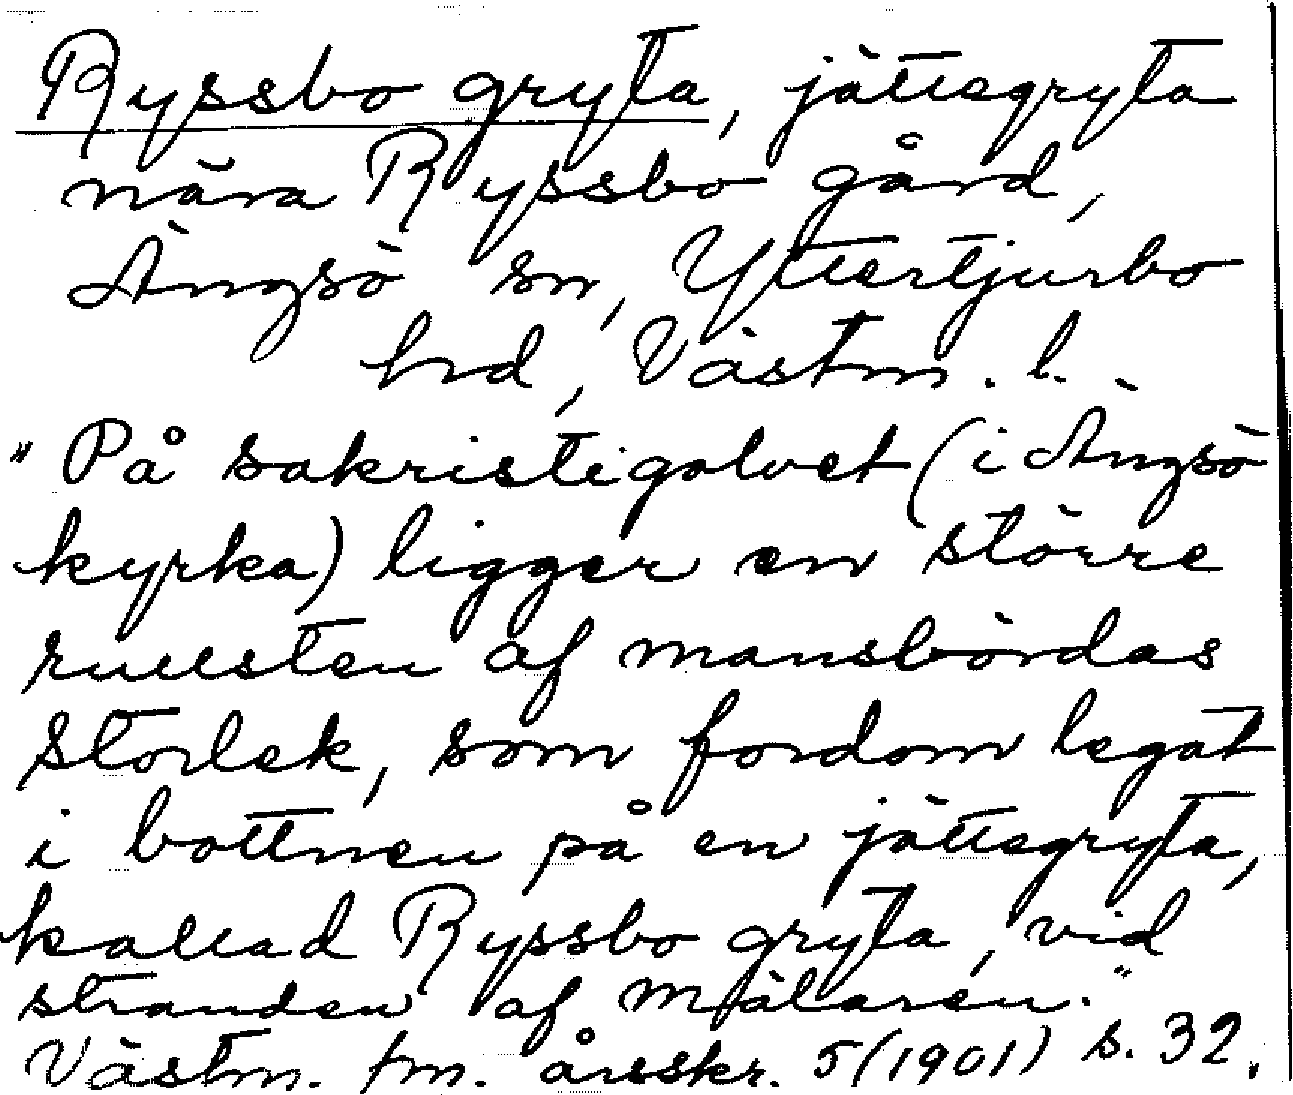 Ryssbo gryta, jättegryta
nära Ryssbo gård,
Ängsö sn, Yttertjurbo
hd, Västm. l.
"På sakristigolvet (i Ängsö
kyrka) ligger en större
rullsten af mansbördas
storlek, som fordom legat
i bottnen på en jättegryta,
kallad Ryssbo gryta, vid
stranden af Mälaren."
Västm. fm. årsskr. 5 (1901) s. 32.